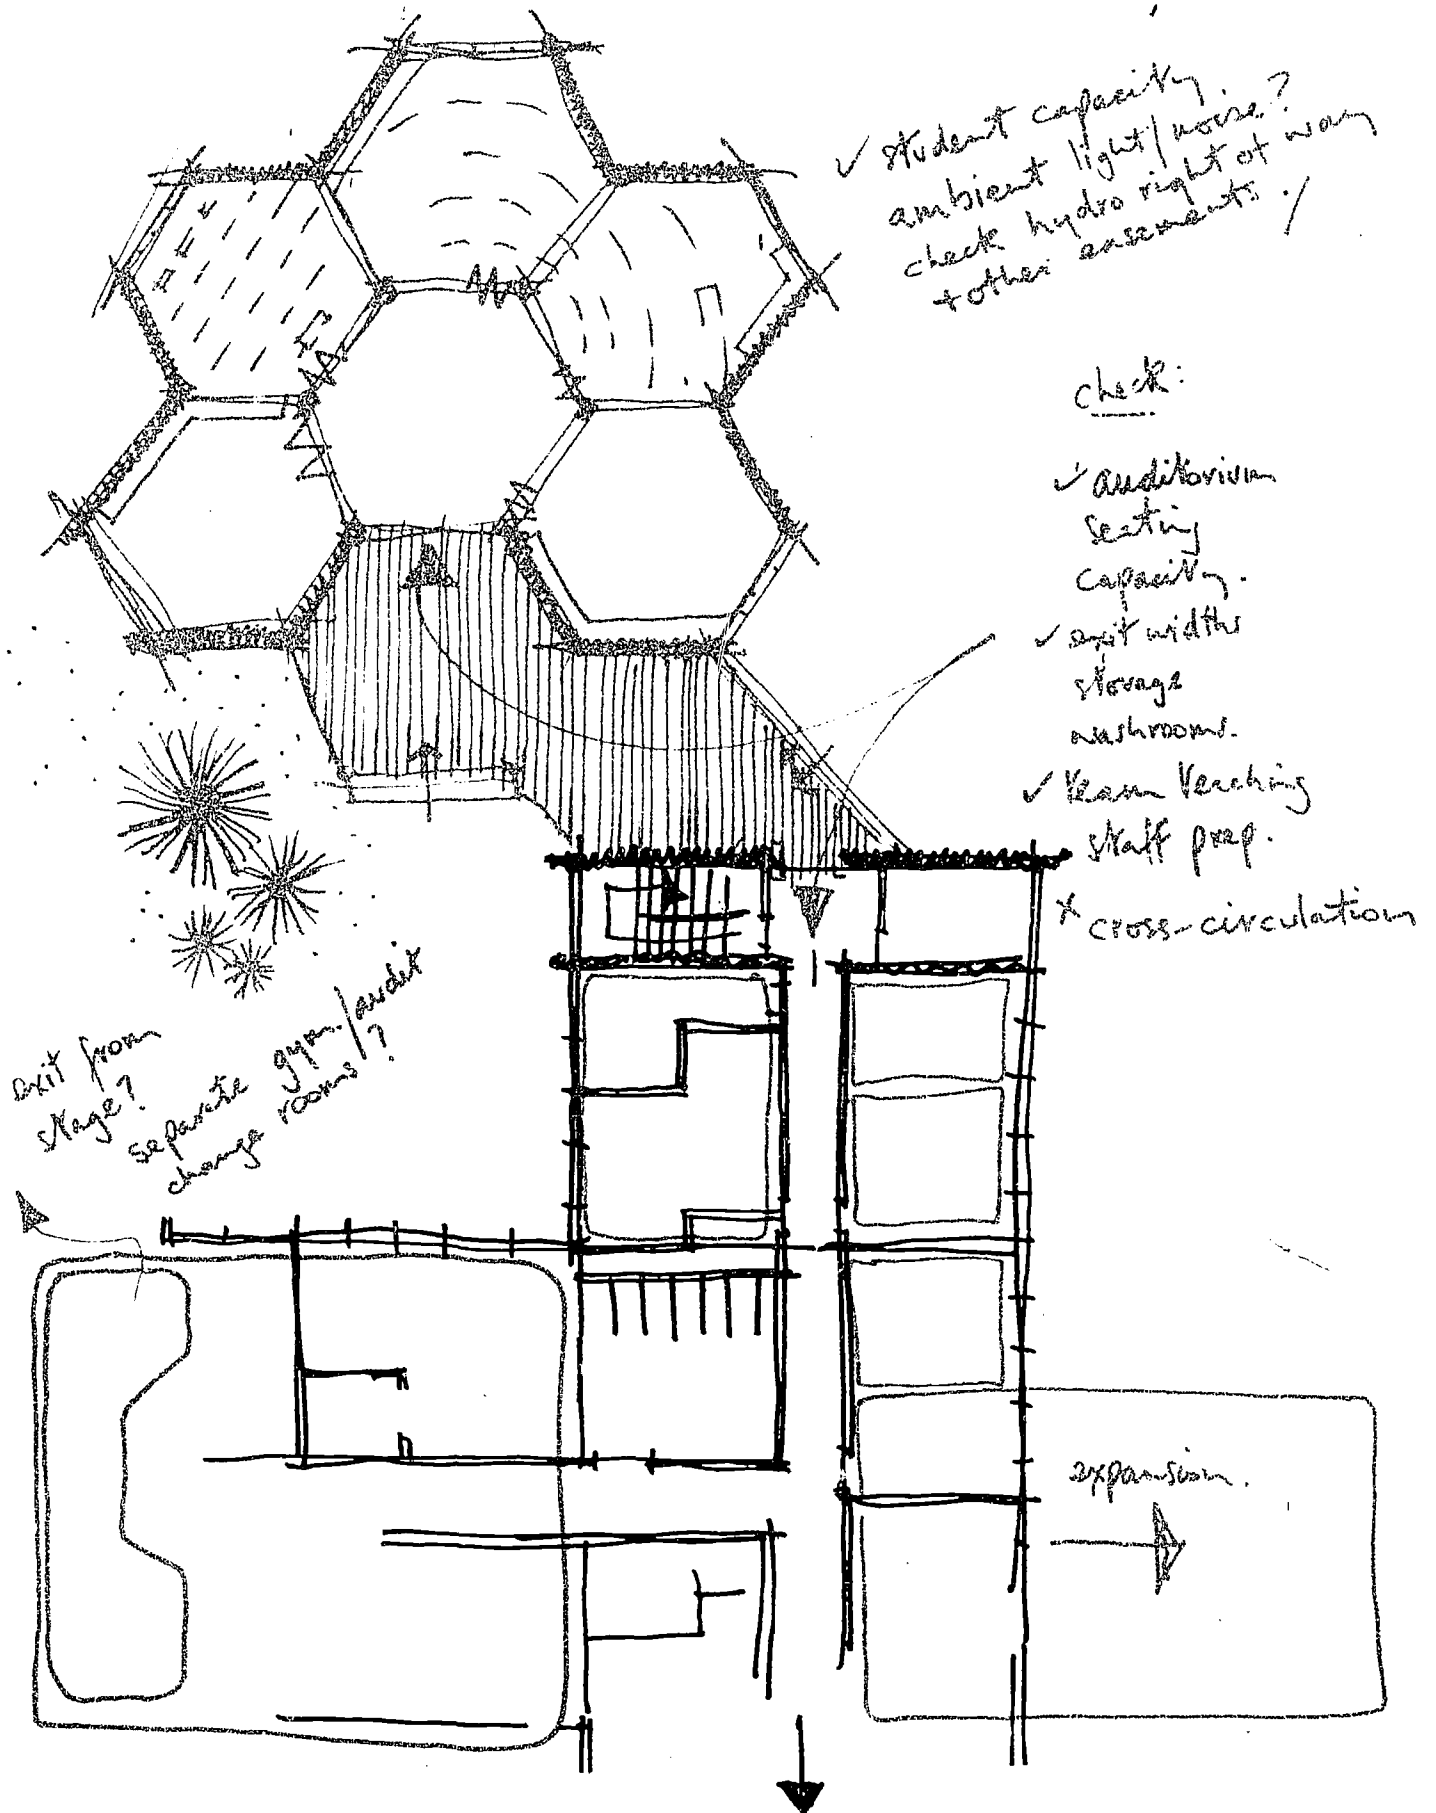 ✓ student capacity.
ambient light/noise?
check hydro right of way
+ other easements.
check:
✓ auditorium
seating
capacity.
✓ exit widths
storage
washrooms.
✓ team teaching
staff prep.
x cross-circulation
exit from
stage?
separate gym./audit
change rooms?
expansion.